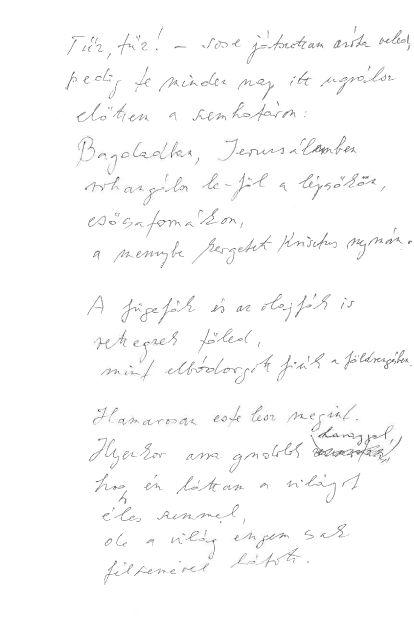 Tűz, tűz! – sose játszottam azóta veled,
pedig te minden nap itt ugrálsz
előttem a szemhatáron:
Bagdadban, Jeruzsálemben
rohangálsz le-föl a lépcsőkön,
esőcsatornákon,
a mennybe kergetett Krisztus nyomán.
A fügefák és az olajfák is
rettegnek tőled,
mint elbódorgott fiúk a földrengésben.
Hamarosan este lesz megint.
Ilyenkor arra gondolok haraggal,
hogy én láttam a világot
éles szemmel,
de a világ engem csak
félszemével látott.